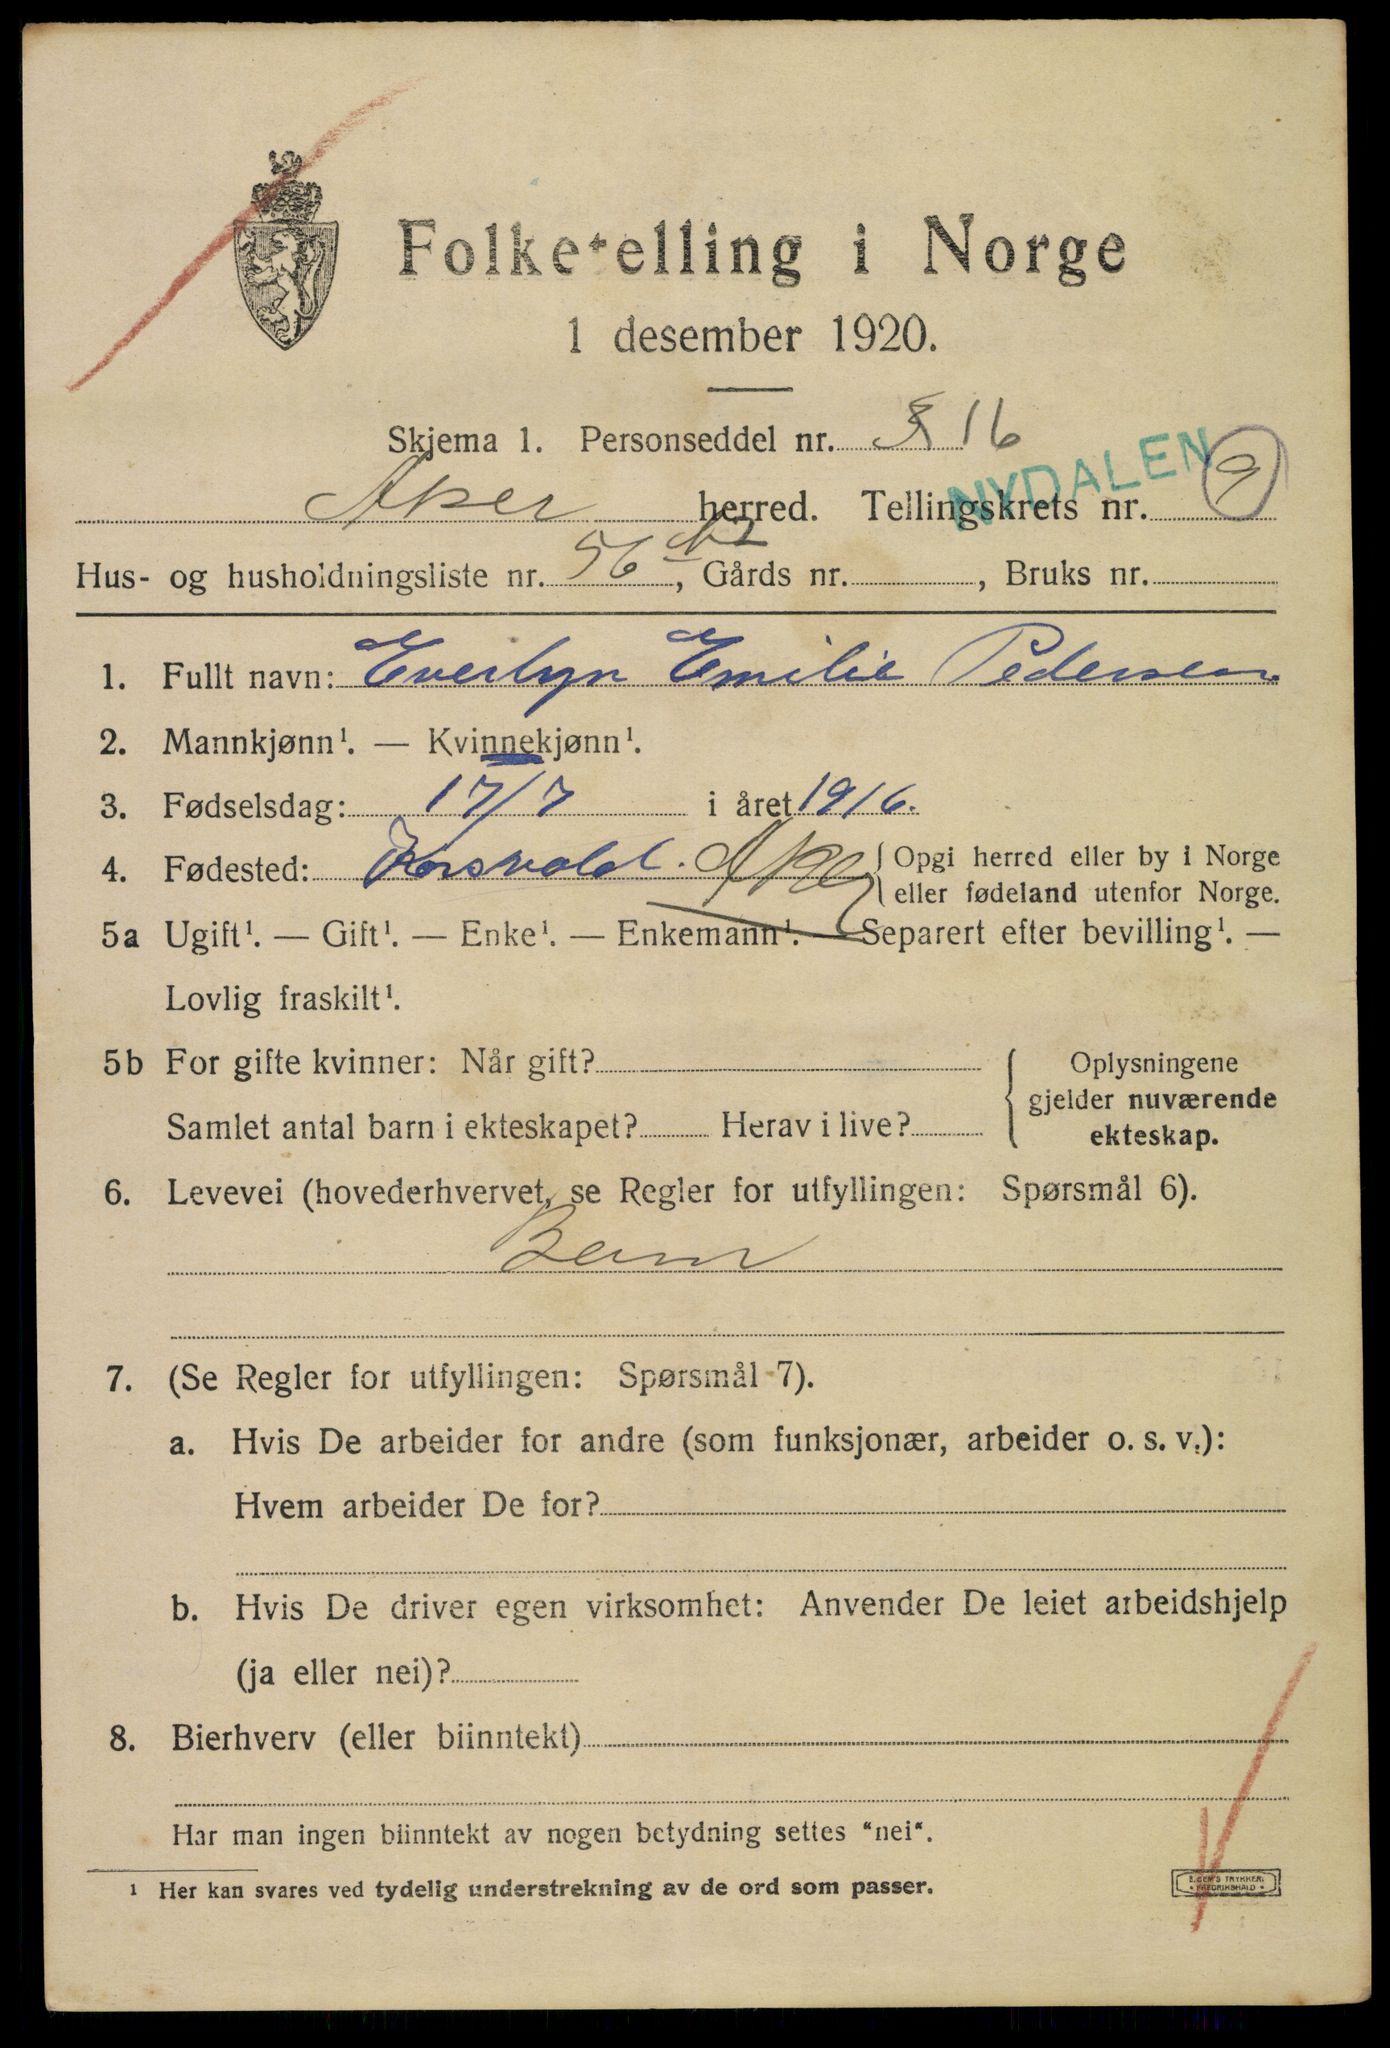 Folketelling i Norge
1 desember 1920.
Skjema 1. Personseddel nr. 16
NYDALEN
Aker herred. Tellingskrets nr. 9
Hus- og husholdningsliste nr. 56, Gårds nr. , Bruks nr.
1. Fullt navn: Everlyn Emilie Pedersen
2. Mannkjønn¹. — Kvinnekjønn¹.
3. Fødselsdag: 17/7 i året 1916.
4. Fødested: Korsvold. Aker { Opgi herred eller by i Norge
eller fødeland utenfor Norge.
5a Ugift¹. — Gift¹. — Enke¹. — Enkemann¹. — Separert efter bevilling¹. —
Lovlig fraskilt¹.
5b For gifte kvinner: Når gift? { Oplysningene
gjelder nuværende
Samlet antal barn i ekteskapet? Herav i live? ekteskap.
6. Levevei (hovederhvervet, se Regler for utfyllingen: Spørsmål 6).
Barn
7. (Se Regler for utfyllingen: Spørsmål 7).
a. Hvis De arbeider for andre (som funksjonær, arbeider o. s. v.):
Hvem arbeider De for?
b. Hvis De driver egen virksomhet: Anvender De leiet arbeidshjelp
(ja eller nei)?
8. Bierhverv (eller biinntekt)
Har man ingen biinntekt av nogen betydning settes "nei".
¹ Her kan svares ved tydelig understrekning av de ord som passer.